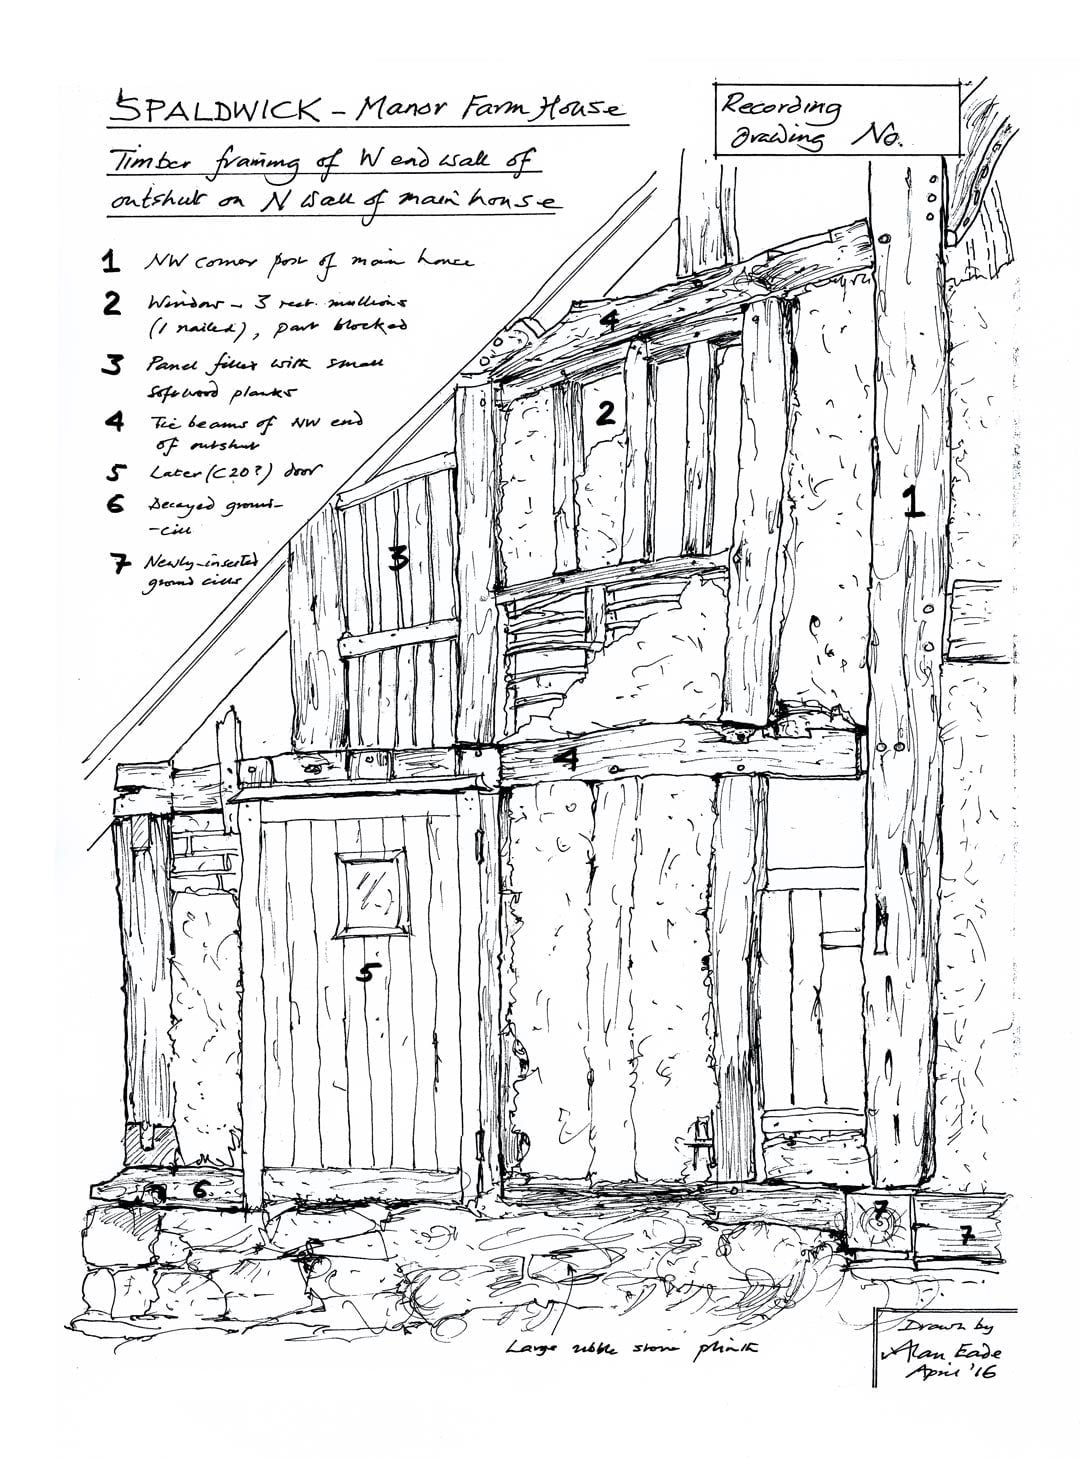 SPALDWICK - Manor Farm House
Recording
Drawing No.
Timber framing of W end wall of
outshut on N wall of main house
1 NW corner post of main house
2 Window - 3 rect. mullions
(1 nailed), part blocked
3 Panel filled with small
softwood planks
4 Tie beams of NW end
of outshut
5 Later (C20?) door
6 Decayed ground-
-cill
7 Newly-inserted
ground cills
4
2
1
3
4
5
6
7
7
Large rubble stone plinth
Drawn by
Alan Eade
April '16